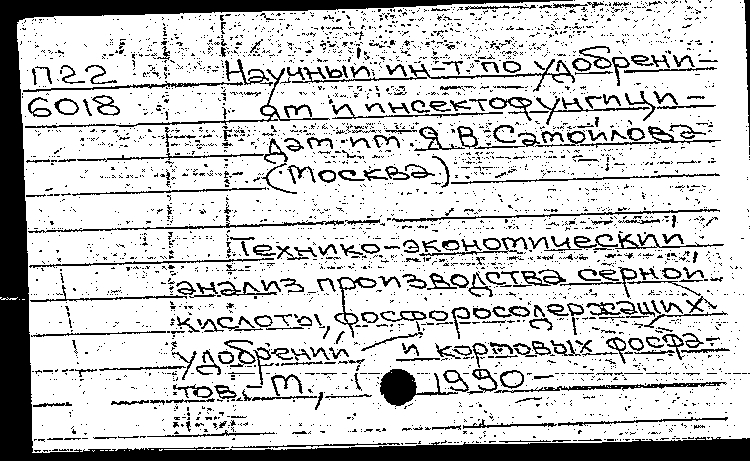 П22
6018
Научный ин-т по удобрени-
ям и инсектофунгици-
дам им. Я.В. Самойлова
(Москва).
Технико-экономический
анализ производства серной
кислоты, фосфоросодержащих
удобрений и кормовых фосфа-
тов. - М., 1990 -